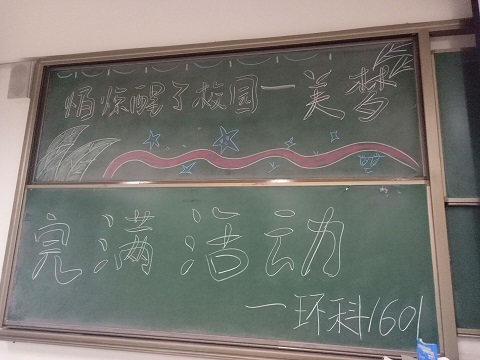 焰惊醒了校园一美梦
完满活动
—环科1601